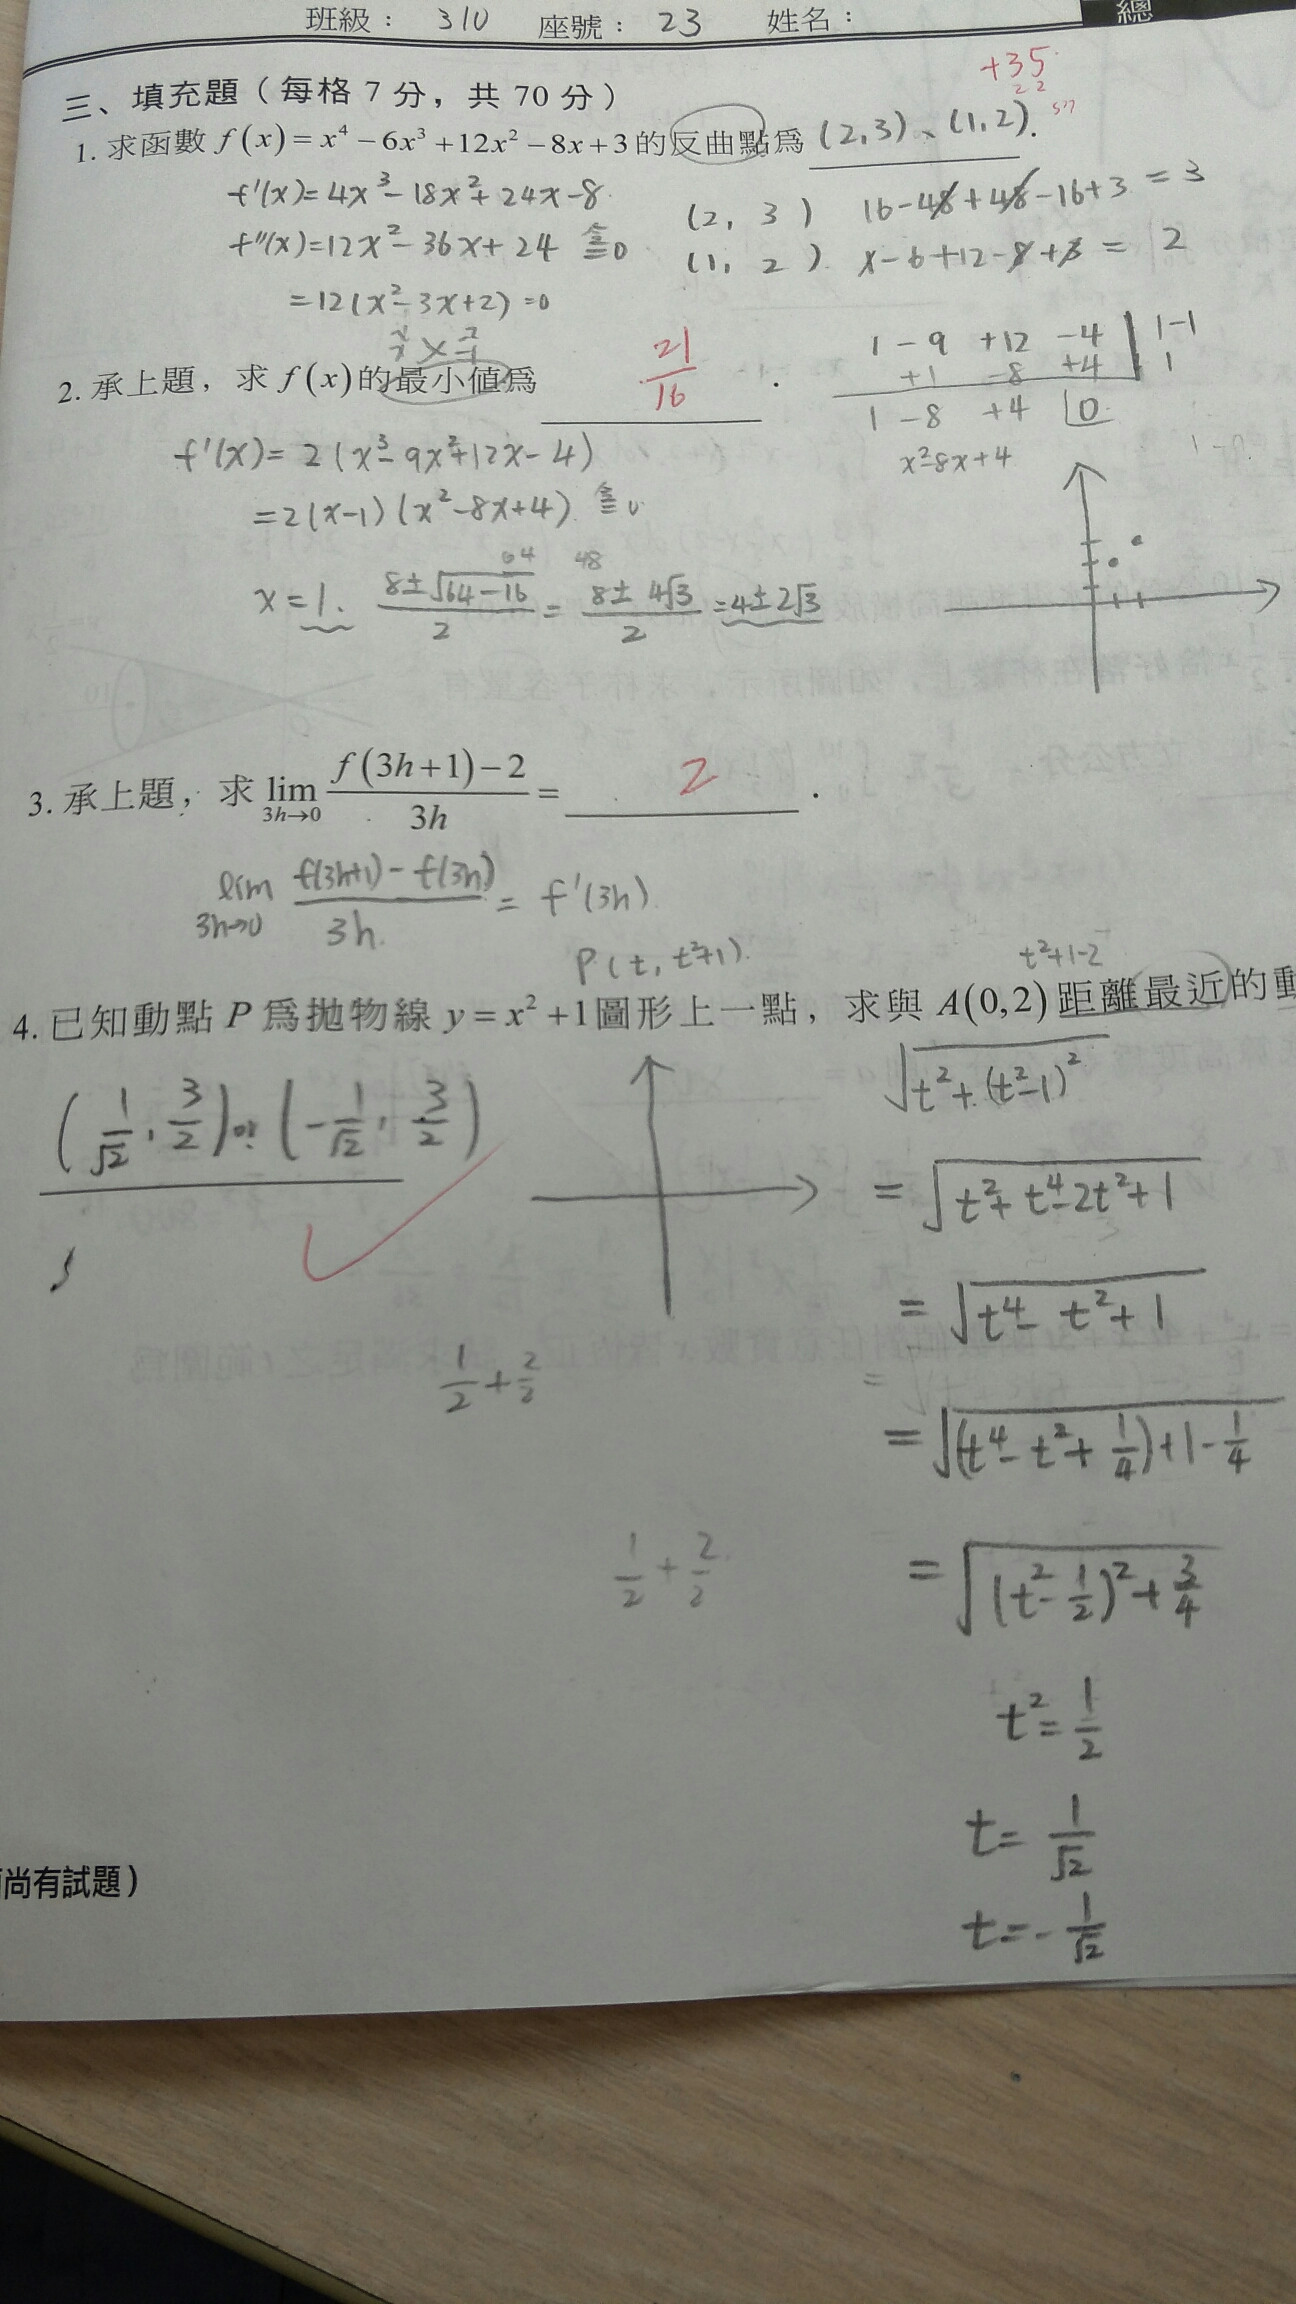 班級： 310 座號： 23 姓名：
總
+35
三、填充題（每格 7 分，共 70 分）
1. 求函數 f(x)=x⁴−6x³+12x²−8x+3 的反曲點為 (2,3)、(1,2).
f'(x)=4x³−18x²+24x−8
f''(x)=12x²−36x+24 令=0
=12(x²−3x+2)=0
(2, 3) 16−48+48−16+3 = 3
(1, 2) x−6+12−8+3 = 2
2. 承上題，求 f(x) 的最小值為 21/16 .
1 −9 +12 −4 | 1−1
+1 −8 +4 | 1
1 −8 +4 0
x²−8x+4
f'(x)=2(x³−9x²+12x−4)
=2(x−1)(x²−8x+4) 令=0
64 48
x=1. (8±√(64−16))/2 = (8±4√3)/2 = 4±2√3
3. 承上題，求 lim 3h→0 (f(3h+1)−2)/3h = 2 .
lim 3h→0 (f(3h+1)−f(3h))/3h = f'(3h)
P(t, t²+1).
t²+1−2
4. 已知動點 P 為拋物線 y=x²+1 圖形上一點，求與 A(0,2) 距離最近的動
(1/√2, 3/2) or (−1/√2, 3/2)
√(t²+(t²−1)²)
=√(t²+t⁴−2t²+1)
=√(t⁴−t²+1)
=
=√((t⁴−t²+1/4)+1−1/4)
1/2+2/2
1/2+2/2
=√((t²−1/2)²+3/4)
t²=1/2
t=1/√2
t=−1/√2
尚有試題）